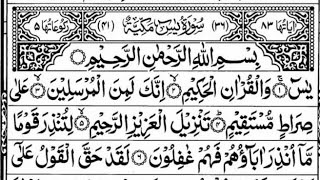 اٰیَاتُهَا ۸۳ (۳۶) سُوْرَةُ یٰسٓ مَكِّیَّةٌ (۴۱) رُكُوْعَاتُهَا ۵
بِسْمِ اللّٰهِ الرَّحْمٰنِ الرَّحِیْمِ
یٰسٓ ۚ۱ وَالْقُرْاٰنِ الْحَكِیْمِ ۙ۲ اِنَّكَ لَمِنَ الْمُرْسَلِیْنَ ۙ۳ عَلٰی
صِرَاطٍ مُّسْتَقِیْمٍ ؕ۴ تَنْزِیْلَ الْعَزِیْزِ الرَّحِیْمِ ۙ۵ لِتُنْذِرَ قَوْمًا
مَّاۤ اُنْذِرَ اٰبَآؤُهُمْ فَهُمْ غٰفِلُوْنَ ۶ لَقَدْ حَقَّ الْقَوْلُ عَلٰۤی